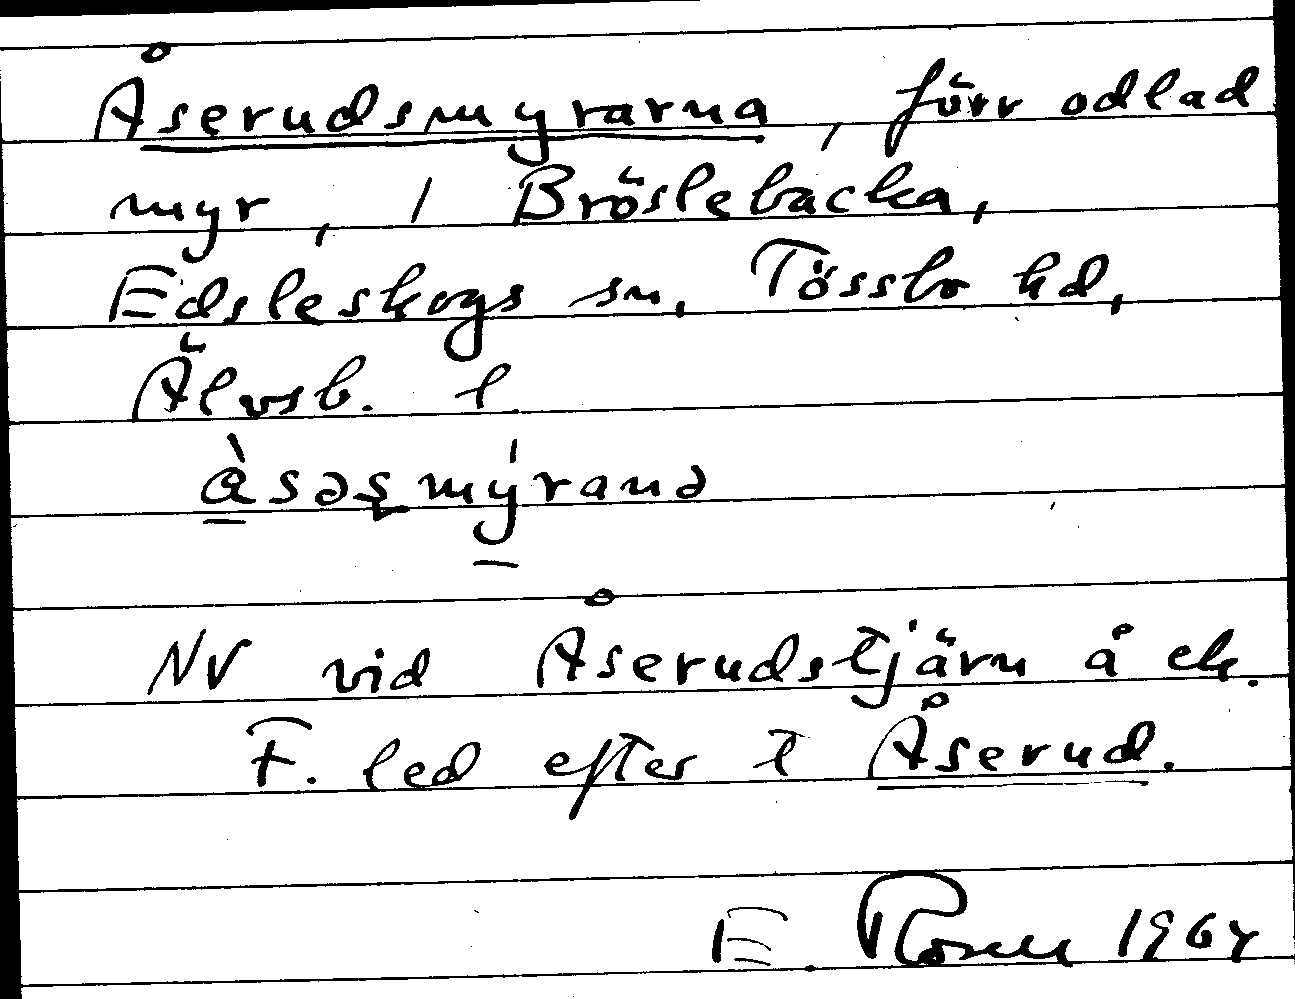 Åserudsmyrarna, förr odlad
myr, i Bröslebacka,
Edsleskogs sn, Tössbo hd,
Älvsb. l
å̀səʂmýranə
NV vid Åserudstjärn å ek.
F. led efter t Åserud.
E. Rosell 1964